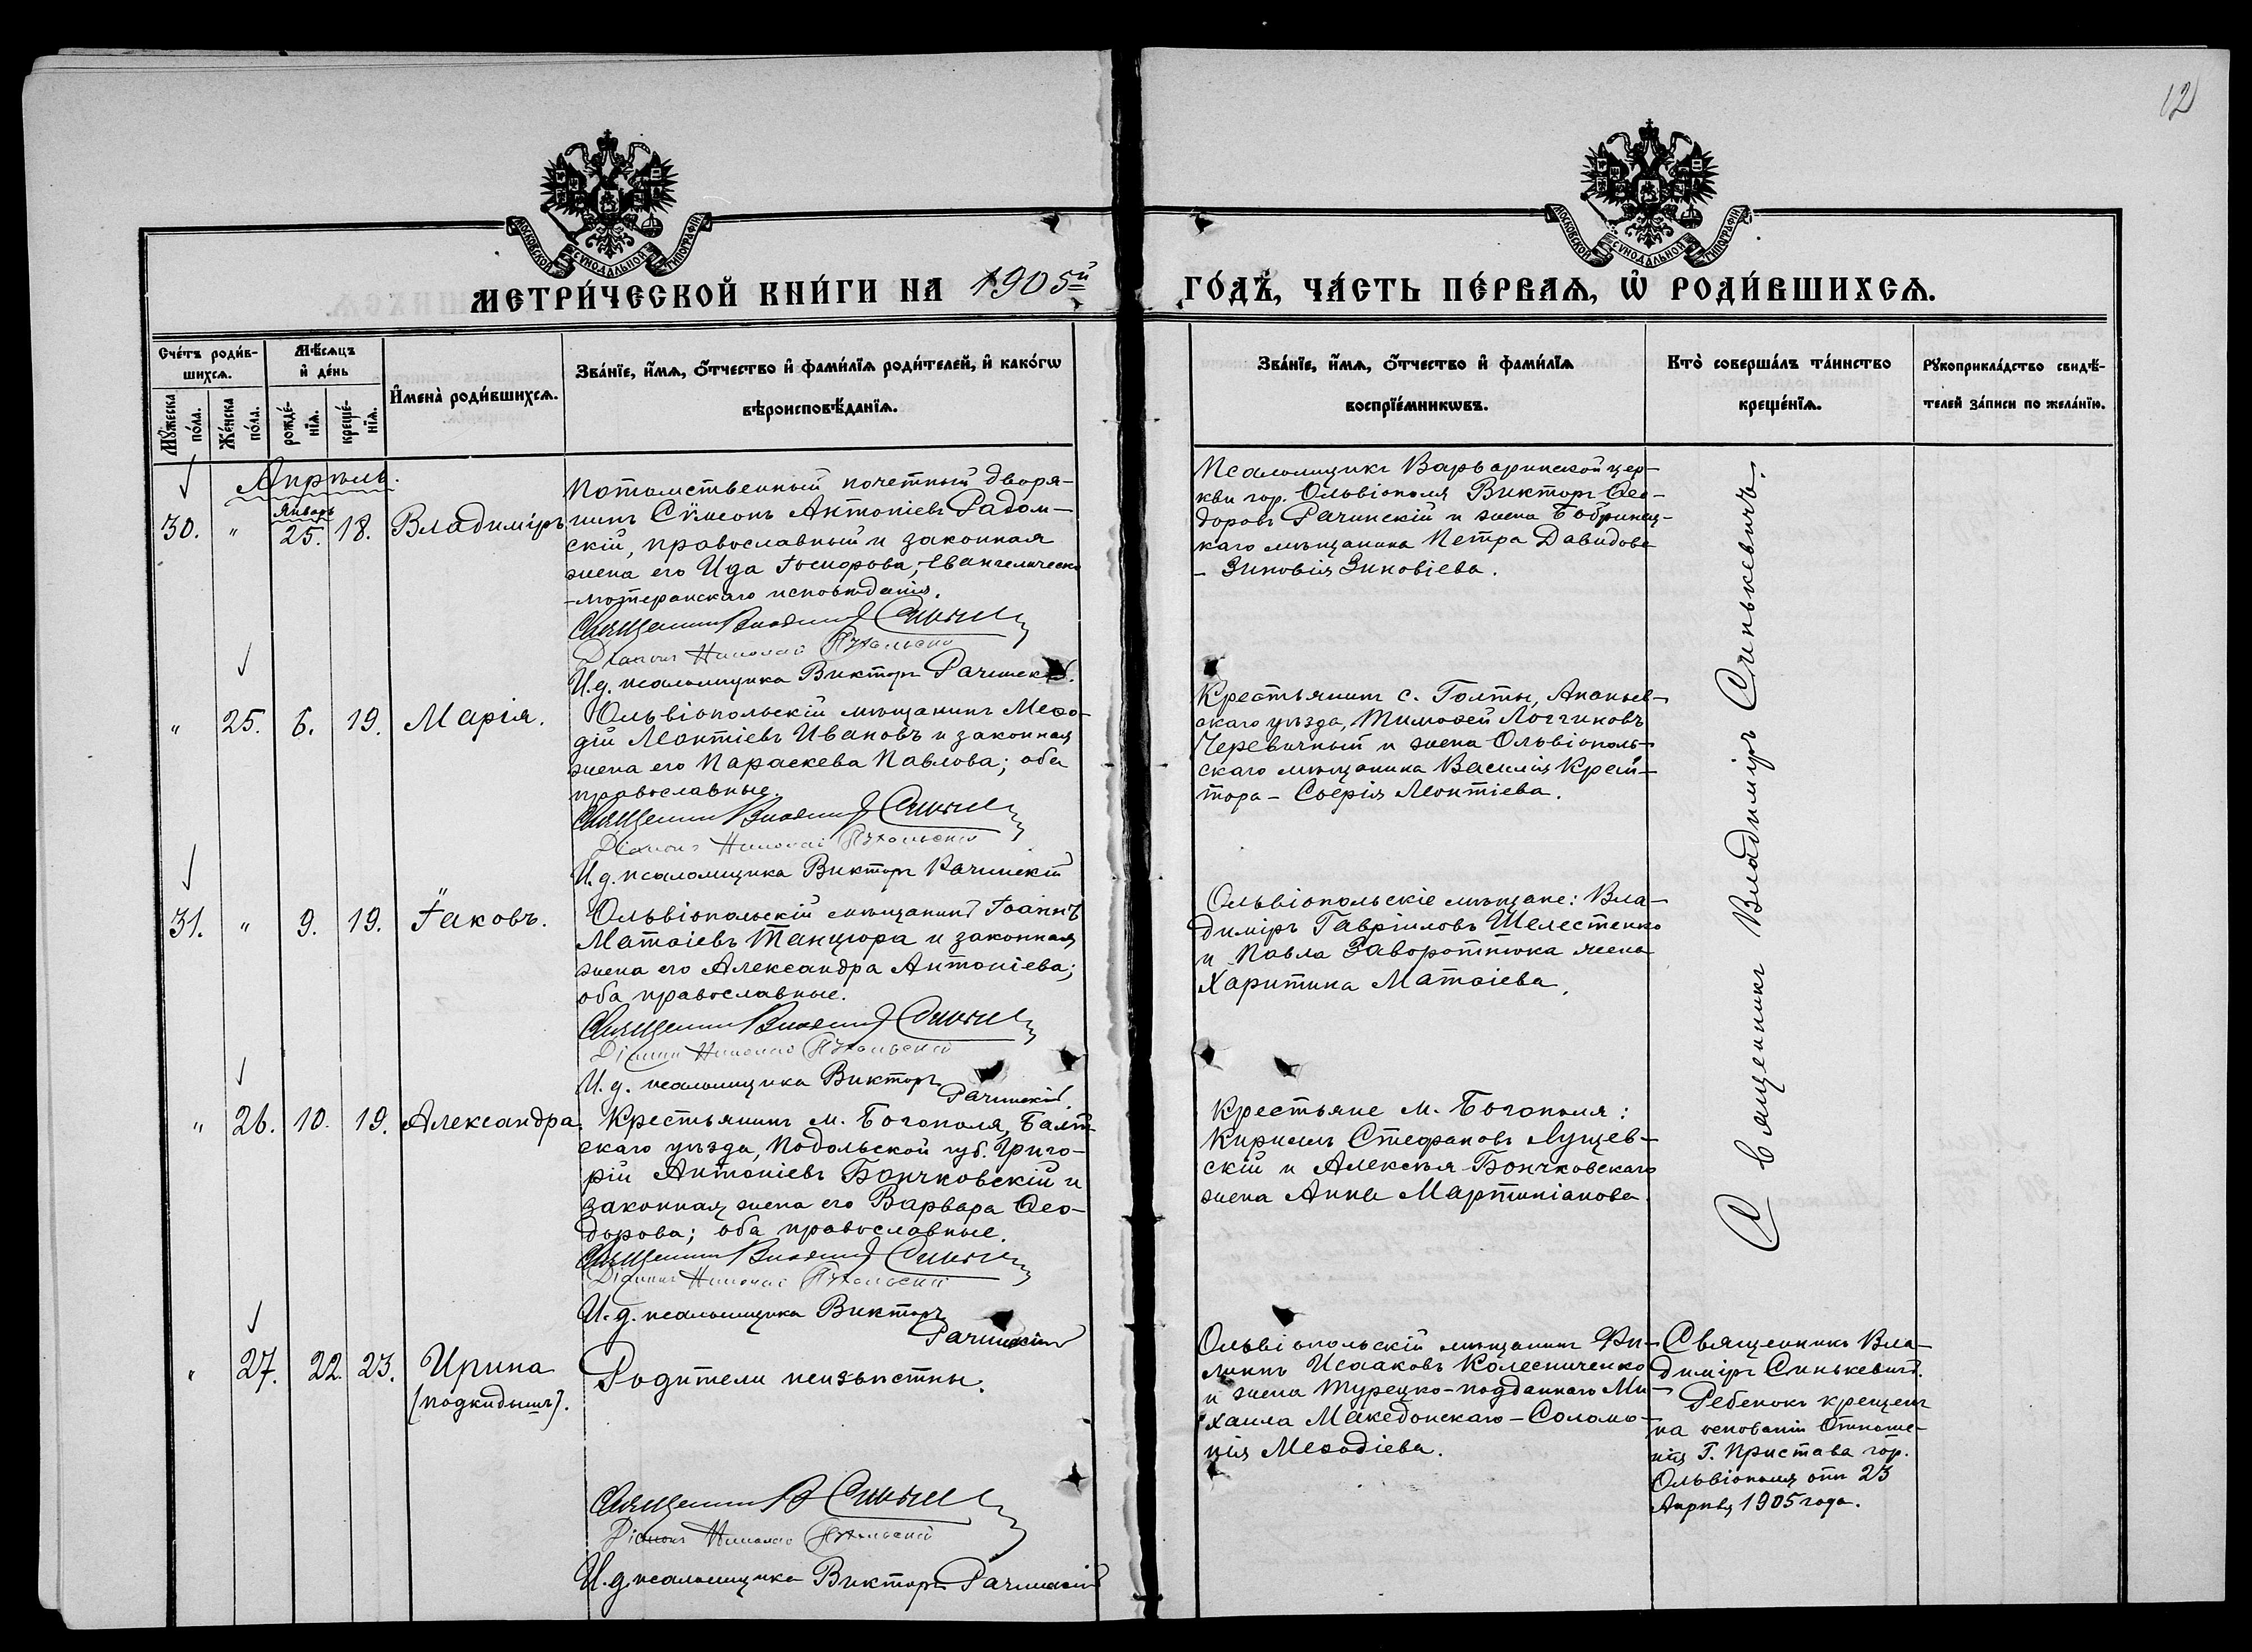 12
МОСКОВСКОЙ СѴНОДАЛЬНОЙ ТИПОГРАФІИ
МОСКОВСКОЙ СѴНОДАЛЬНОЙ ТИПОГРАФІИ
МЕТРИ́ЧЕСКОЙ КНИ́ГИ НА 1905й
ГО́ДЪ, ЧА́СТЬ ПЕ́РВАѦ, Ѡ҆ РОДИ́ВШИХСѦ.
Сче́тъ роди́в-
шихсѧ.
Мѣ́сѧцъ
и҆ де́нь
Мꙋ́жеска
по́ла.
Же́нска
по́ла.
рожде́-
нїѧ.
креще́-
нїѧ.
И҆мена̀ роди́вшихсѧ.
Зва́нїе, и҆́мѧ, ѻ҆́тчество и҆ фами́лїѧ роди́телей, и҆ како́гѡ
вѣроисповѣ́данїѧ.
Зва́нїе, и҆́мѧ, ѻ҆́тчество и҆ фами́лїѧ
воспрїе́мникѡвъ.
Кто̀ соверша́лъ та́инство
креще́нїѧ.
Рꙋкоприкла́дство свидѣ́-
телей за́писи по жела́нїю.
Апрѣль.
Январь
30. " 25. 18. Владиміръ
Потомственный почетный дворя-
нинъ Сѵмеонъ Антоніевъ Радом-
скій, православный и законная
жена его Ида Іосифова, Евангелическо
-лютеранскаго исповѣданія.
Священникъ Владиміръ Синькевичъ
Діаконъ Николай
И. д. псаломщика Викторъ Рачинскій.
Псаломщикъ Варваринской цер-
кви гор. Ольвіополя Викторъ Ѳео-
доровъ Рачинскій и жена Бобринец-
каго мѣщанина Петра Давидова
- Зиновія Зиновіева.
" 25. 6. 19. Марія.
Ольвіопольскій мѣщанинъ Меѳо-
дій Леонтіевъ Ивановъ и законная
жена его Параскева Павлова; оба
православные.
Священникъ Владиміръ Синькевичъ
Діаконъ Николай
И. д. псаломщика Викторъ Рачинскій
Крестьянинъ с. Голты, Ананьев-
скаго уѣзда, Тимоѳей Логгиновъ
Черевичный и жена Ольвіополь-
скаго мѣщанина Василія Крей-
тора - Софія Леонтіева.
31. " 9. 19. Іаковъ.
Ольвіопольскій мѣщанинъ Іоаннъ
Матѳіевъ Танцюра и законная
жена его Александра Антоніева;
оба православные.
Священникъ Владиміръ Синькевичъ
Діаконъ Николай
И. д. псаломщика Викторъ
Рачинскій.
Ольвіопольскіе мѣщане: Вла-
диміръ Гавріиловъ Шелестенко
и Павла Заворотнюка жена
Харитина Матѳіева.
" 26. 10. 19. Александра.
Крестьянинъ м. Богополя, Балт-
скаго уѣзда, Подольской губ. Григо-
рій Антоніевъ Бончковскій и
законная жена его Варвара Ѳео-
дорова; оба православные.
Священникъ Владиміръ Синькевичъ
Діаконъ Николай
И. д. псаломщика Викторъ
Рачинскій
Крестьяне м. Богополя:
Кириллъ Стефановъ Лущев-
скій и Алексѣя Бончковскаго
жена Анна Мартиніанова
Священникъ Владиміръ Синькевичъ.
" 27. 22. 23. Ирина
(подкидышъ).
Родители неизвѣстны.
Священникъ В Синькевичъ
Діаконъ Николай
И. д. псаломщика Викторъ Рачинскій
Ольвіопольскій мѣщанинъ Фи-
липпъ Исааковъ Колесниченко
и жена Турецко-подданнаго Ми-
хаила Македонскаго - Соломо-
нія Меѳодіева.
Священникъ Вла-
диміръ Синькевичъ.
Ребенокъ крещенъ
на основаніи Отноше-
нія Г. Пристава гор.
Ольвіополя отъ 23
Апрѣля 1905 года.